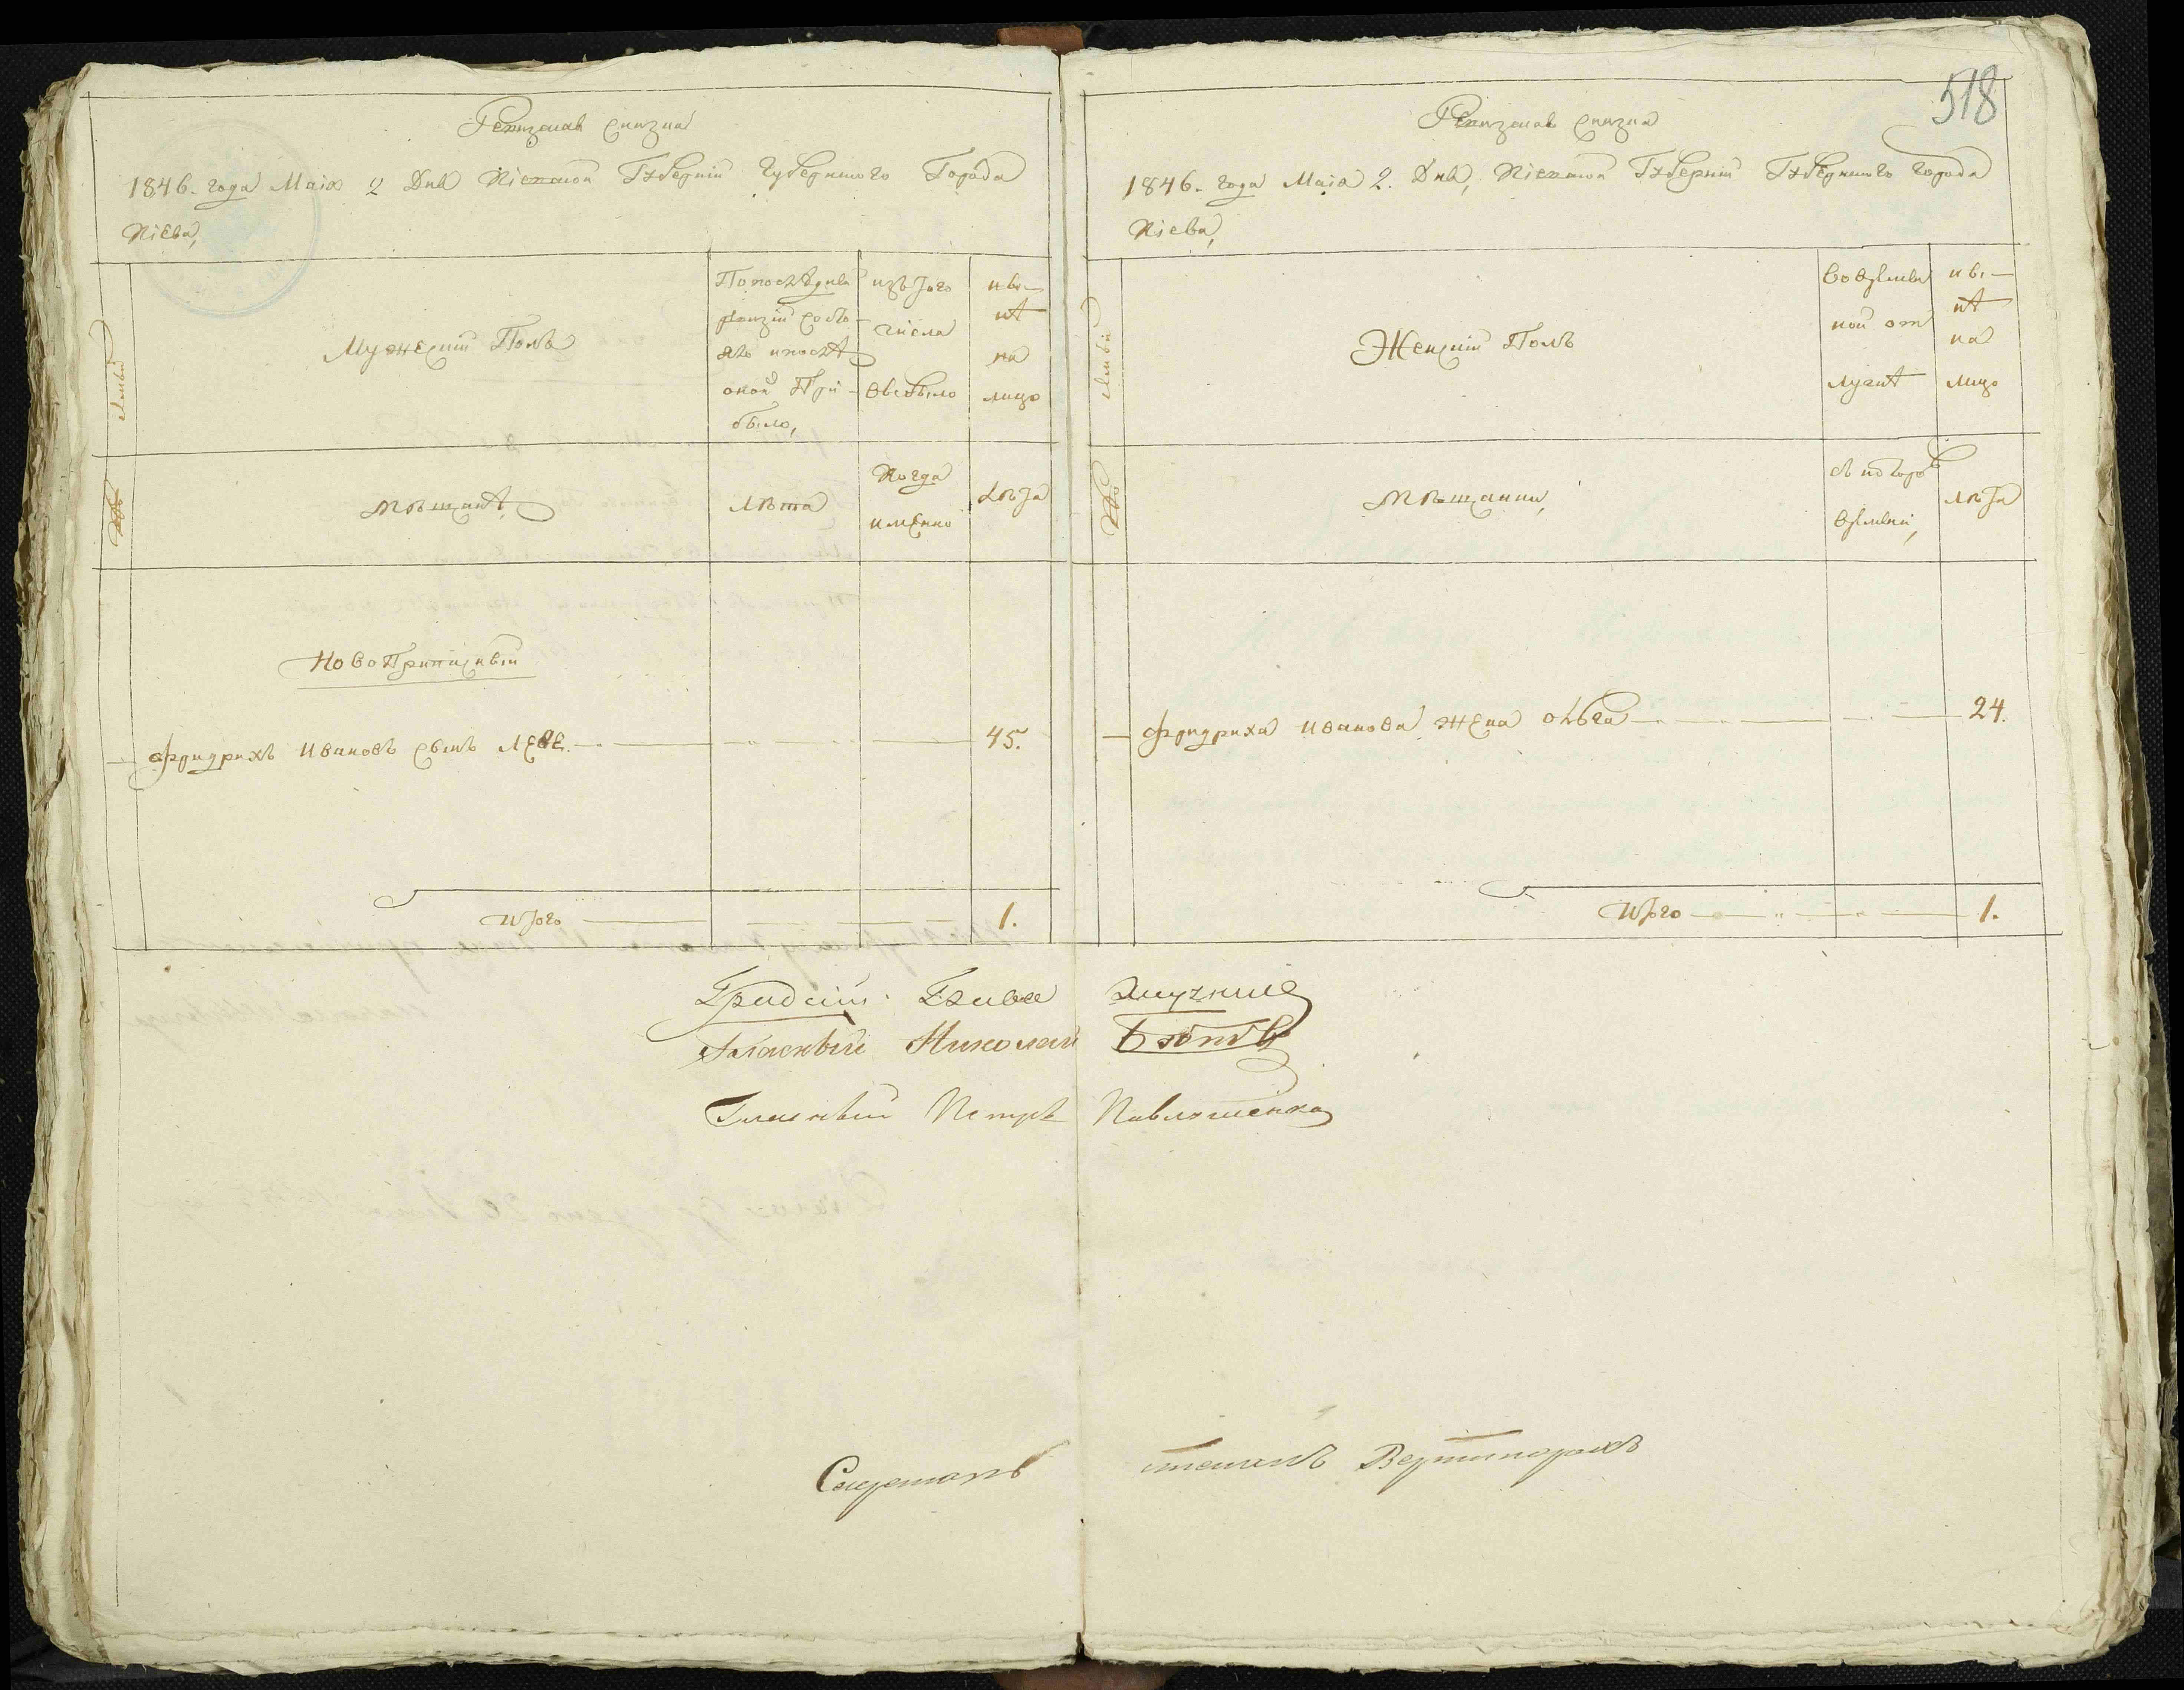 Ревизская сказка
1846. года Маія 2 Дня Кіевской Губерніи Губернского Города
Кіева,
Семьи
Мужескій Полъ
По последней
ревизіи состо-
яло и после
оной При-
было,
изъ того
числа
выбыло
ны-
не
на
лицо
№
Мещане,
Лета
Когда
именно
Лета
НовоПриписный
Фридрихъ Ивановъ сынъ
45.
Итого
1.
518
Ревизская сказка
1846. года Маія 2. Дня, Кіевской Губерніи Губернского города
Кіева,
Семьи
Женскій Полъ
Во временной от
лучке
ны-
не
на
лицо
№
Мещанки,
съ котораго
времени,
лета
Фридриха Иванова жена Ольга
24.
Итого
1.
Градскій Глава
Гласный Николай
Гласный Петръ Павлошенко